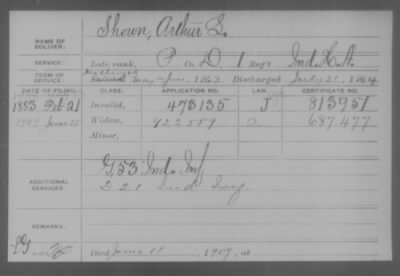 NAME OF SOLDIER: Shown, Arthur L.
SERVICE: Late rank, P Co. D, 1 Reg't Ind. H.A.
TERM OF SERVICE: Enlisted 1863 Discharged July 31, 1864
DATE OF FILING. CLASS. APPLICATION NO. LAW. CERTIFICATE NO.
1883 Feb 21 Invalid, 473135 J 813951
1909 June 25 Widow, 922589 O 687.477
Minor,
ADDITIONAL SERVICES: G. 53 Ind. Inf
D 21 Ind Inf.
REMARKS:
Died June 18, 1909, at